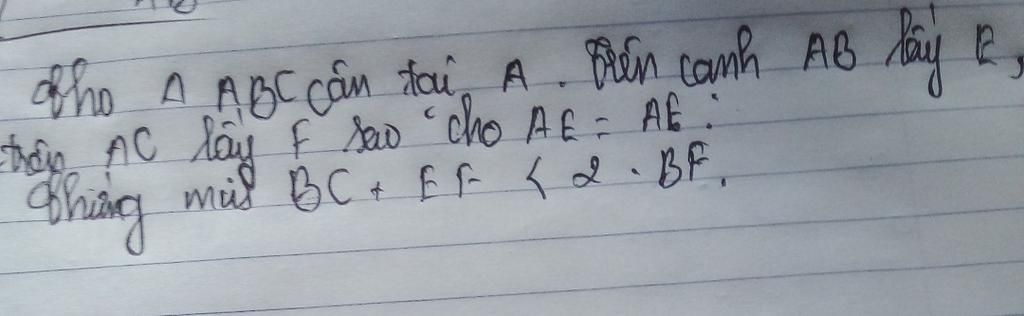 Cho Δ ABC cân tại A. Trên cạnh AB lấy E,
trên AC lấy F sao cho AE = AE.
Chứng minh BC + EF < 2 . BF.